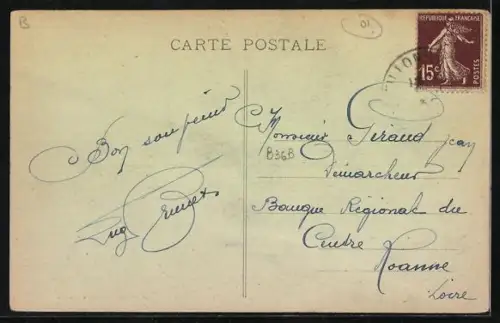 B
01
CARTE POSTALE
RÉPUBLIQUE FRANÇAISE
15c
POSTES
Bon souvenir
Monsieur Giraud Jean
B36B
Démarcheur
Banque Régional du
Centre
Roanne
Loire